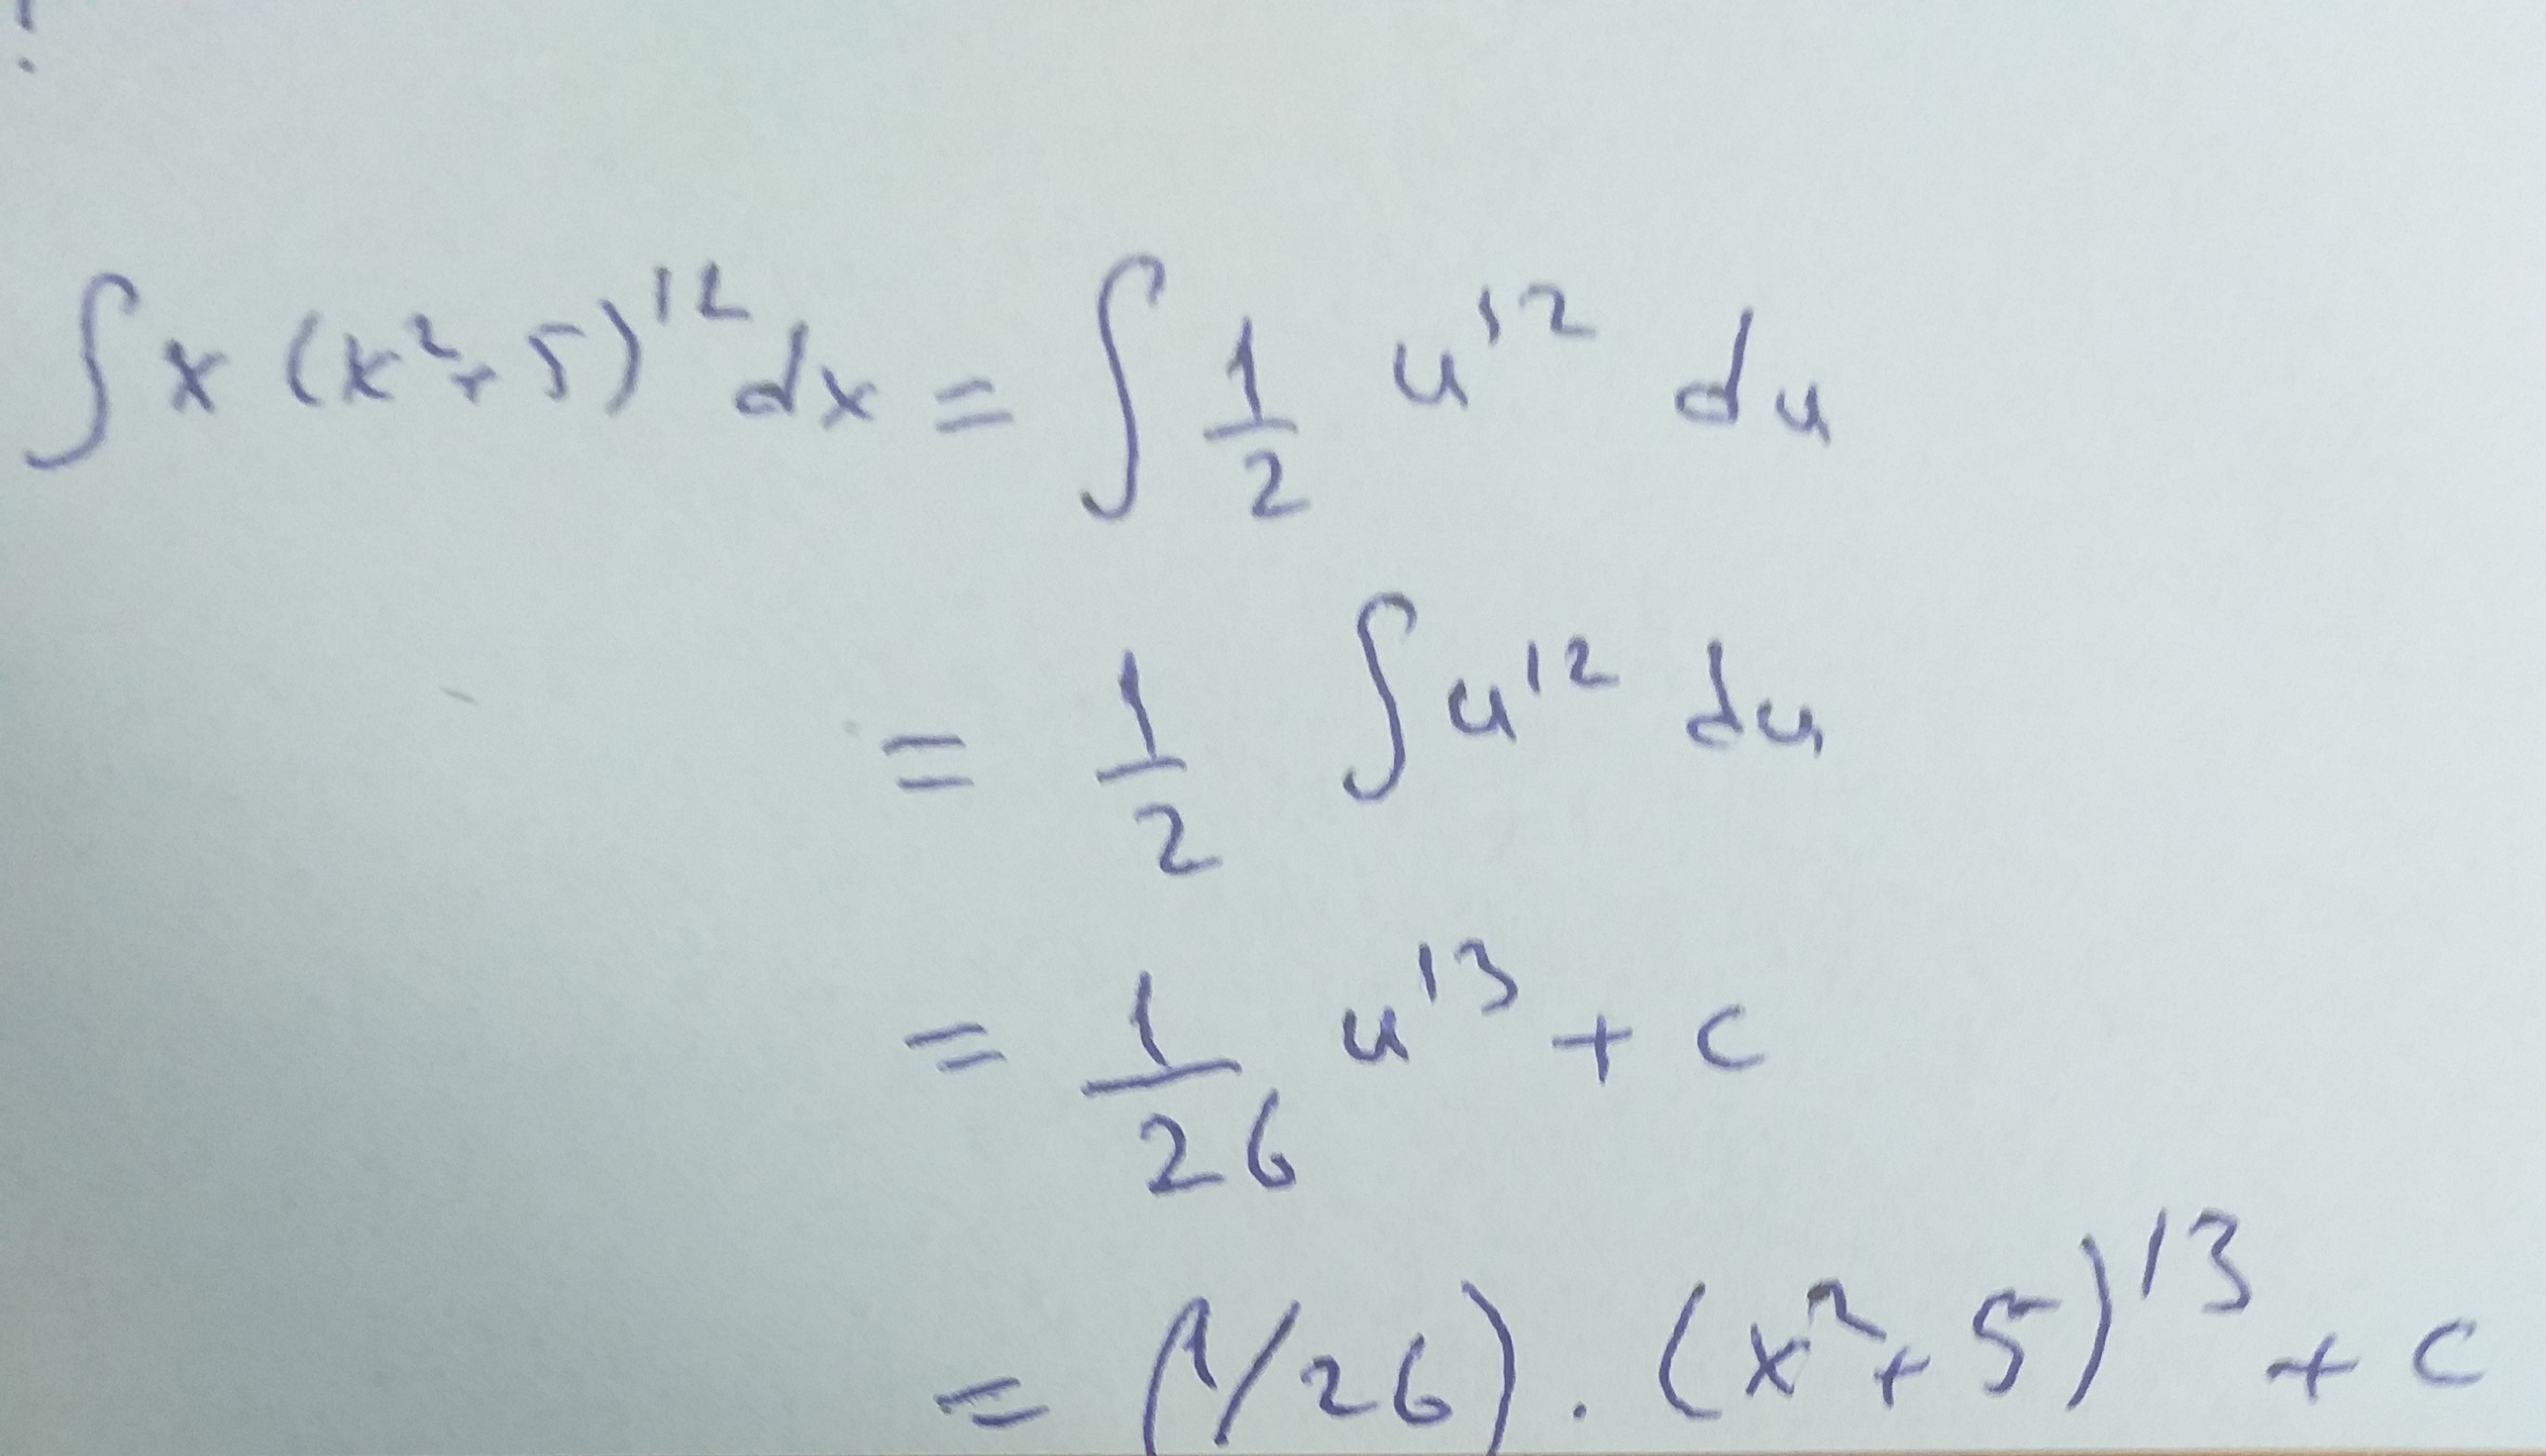 ∫ x (x²+5)¹² dx = ∫ 1/2 u¹² du
= 1/2 ∫ u¹² du
= 1/26 u¹³ + c
= (1/26) . (x²+5)¹³ + c